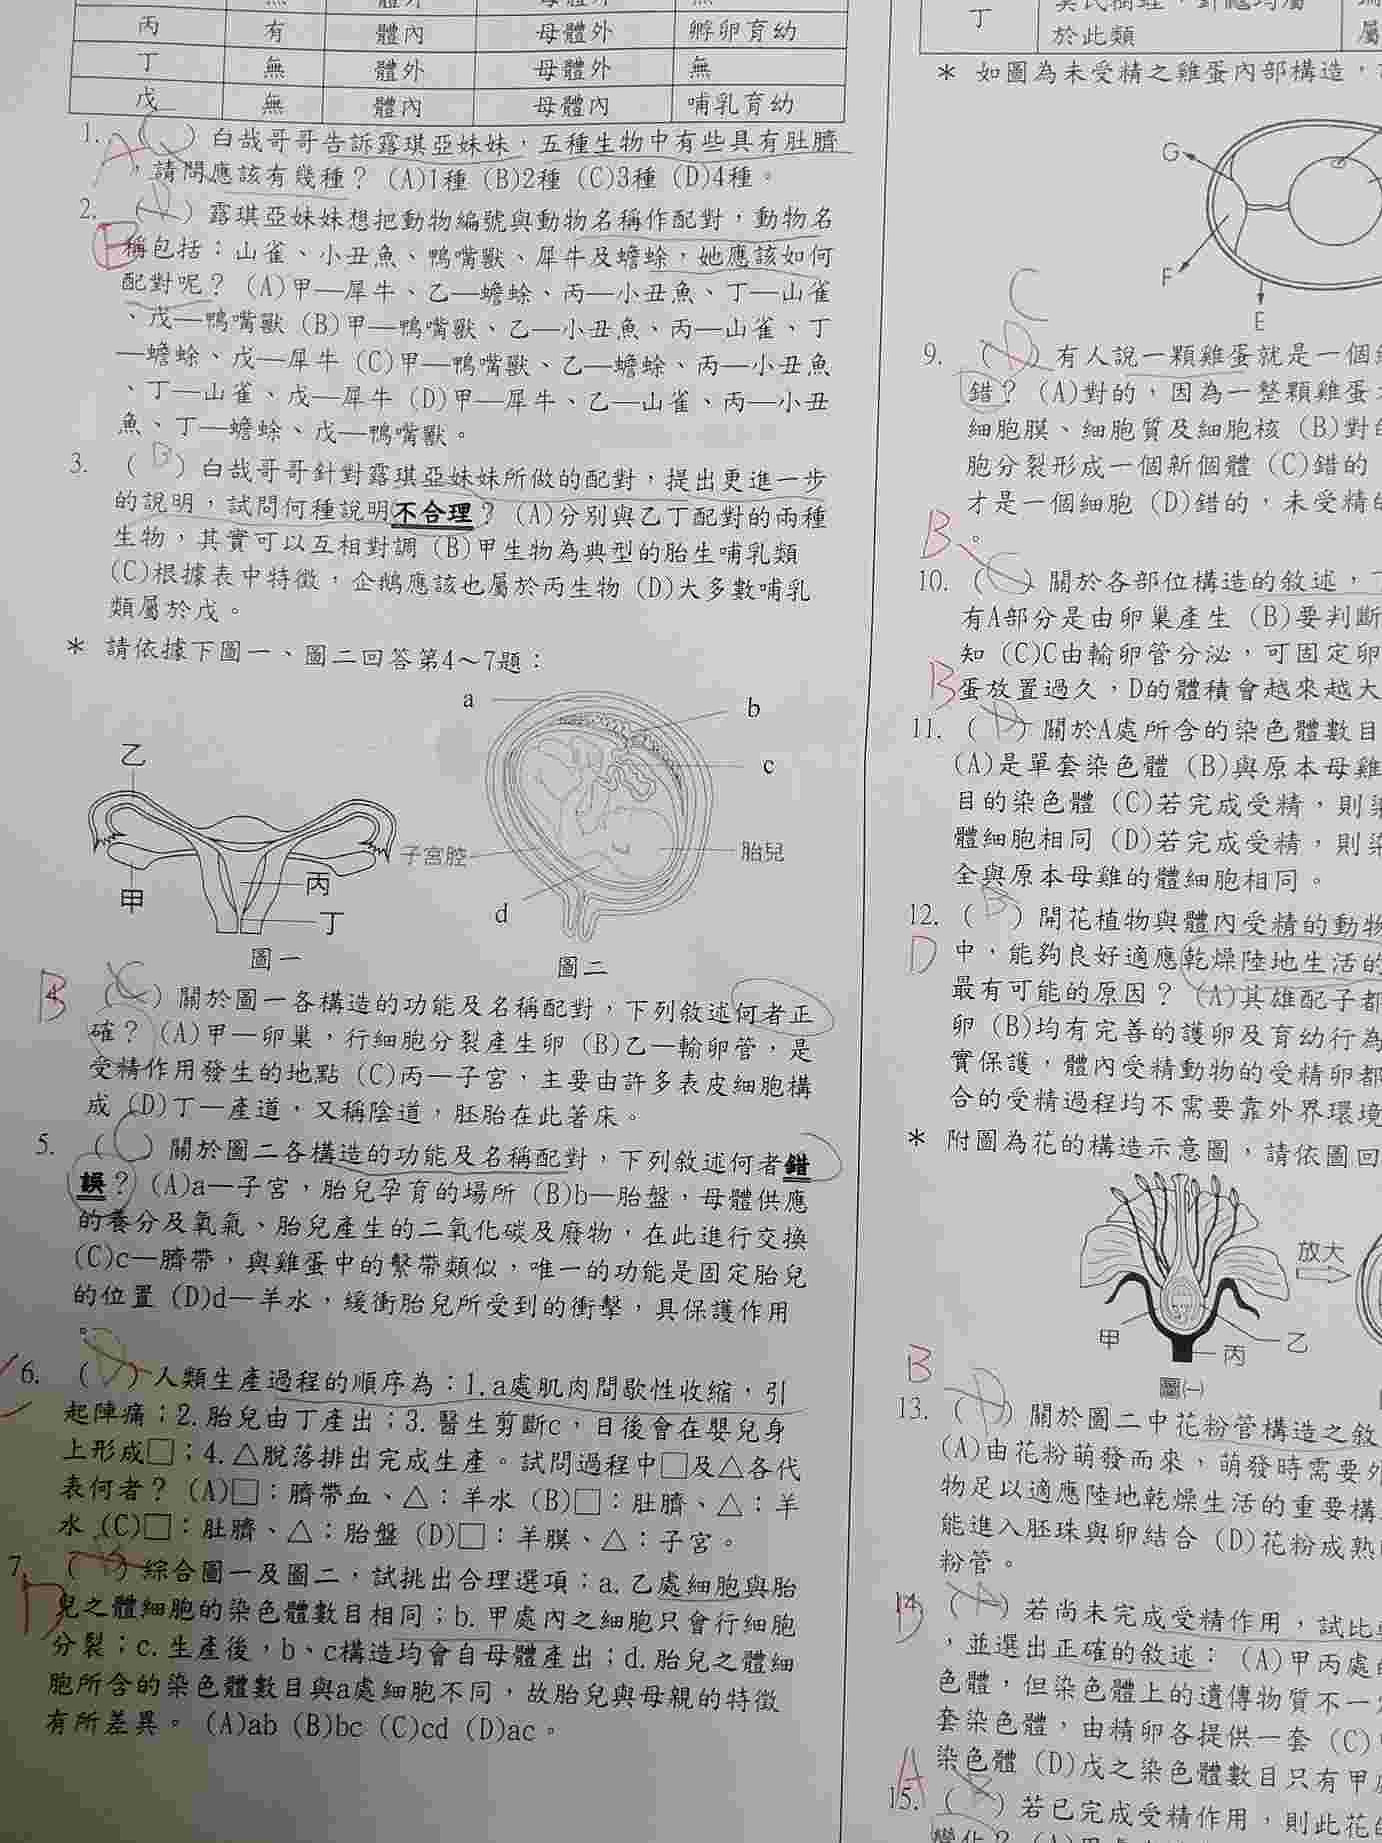 丙 有 體內 母體外 孵卵育幼
丁 無 體外 母體外 無
戊 無 體內 母體內 哺乳育幼
1. ( ) 白哉哥哥告訴露琪亞妹妹，五種生物中有些具有肚臍
，請問應該有幾種？ (A)1種 (B)2種 (C)3種 (D)4種。
A
2. ( ) 露琪亞妹妹想把動物編號與動物名稱作配對，動物名
B
稱包括：山雀、小丑魚、鴨嘴獸、犀牛及蟾蜍，她應該如何
配對呢？ (A)甲—犀牛、乙—蟾蜍、丙—小丑魚、丁—山雀
、戊—鴨嘴獸 (B)甲—鴨嘴獸、乙—小丑魚、丙—山雀、丁
—蟾蜍、戊—犀牛 (C)甲—鴨嘴獸、乙—蟾蜍、丙—小丑魚
、丁—山雀、戊—犀牛 (D)甲—犀牛、乙—山雀、丙—小丑
魚、丁—蟾蜍、戊—鴨嘴獸。
3. ( B ) 白哉哥哥針對露琪亞妹妹所做的配對，提出更進一步
的說明，試問何種說明不合理？ (A)分別與乙丁配對的兩種
生物，其實可以互相對調 (B)甲生物為典型的胎生哺乳類
(C)根據表中特徵，企鵝應該也屬於丙生物 (D)大多數哺乳
類屬於戊。
* 請依據下圖一、圖二回答第4～7題：
乙
甲
丙
丁
圖一
a
b
c
子宮腔
胎兒
d
圖二
B
4. ( C ) 關於圖一各構造的功能及名稱配對，下列敘述何者正
確？ (A)甲—卵巢，行細胞分裂產生卵 (B)乙—輸卵管，是
受精作用發生的地點 (C)丙—子宮，主要由許多表皮細胞構
成 (D)丁—產道，又稱陰道，胚胎在此著床。
5. ( C ) 關於圖二各構造的功能及名稱配對，下列敘述何者錯
誤？ (A)a—子宮，胎兒孕育的場所 (B)b—胎盤，母體供應
的養分及氧氣、胎兒產生的二氧化碳及廢物，在此進行交換
(C)c—臍帶，與雞蛋中的繫帶類似，唯一的功能是固定胎兒
的位置 (D)d—羊水，緩衝胎兒所受到的衝擊，具保護作用
。
6. ( D ) 人類生產過程的順序為：1.a處肌肉間歇性收縮，引
起陣痛；2.胎兒由丁產出；3.醫生剪斷c，日後會在嬰兒身
上形成□；4.△脫落排出完成生產。試問過程中□及△各代
表何者？ (A)□：臍帶血、△：羊水 (B)□：肚臍、△：羊
水 (C)□：肚臍、△：胎盤 (D)□：羊膜、△：子宮。
7. ( ) 綜合圖一及圖二，試挑出合理選項：a.乙處細胞與胎
D
兒之體細胞的染色體數目相同；b.甲處內之細胞只會行細胞
分裂；c.生產後，b、c構造均會自母體產出；d.胎兒之體細
胞所含的染色體數目與a處細胞不同，故胎兒與母親的特徵
有所差異。 (A)ab (B)bc (C)cd (D)ac。
丁
於此類
屬
* 如圖為未受精之雞蛋內部構造，
G
F
E
C
9. ( ) 有人說一顆雞蛋就是一個
錯？ (A)對的，因為一整顆雞蛋
細胞膜、細胞質及細胞核 (B)對
胞分裂形成一個新個體 (C)錯的
才是一個細胞 (D)錯的，未受精
B
。
10. ( C ) 關於各部位構造的敘述，
有A部分是由卵巢產生 (B)要判斷
知 (C)C由輸卵管分泌，可固定卵
B
蛋放置過久，D的體積會越來越大
11. ( D ) 關於A處所含的染色體數目
(A)是單套染色體 (B)與原本母雞
目的染色體 (C)若完成受精，則
體細胞相同 (D)若完成受精，則
全與原本母雞的體細胞相同。
12. ( B ) 開花植物與體內受精的動物
D
中，能夠良好適應乾燥陸地生活的
最有可能的原因？ (A)其雄配子都
卵 (B)均有完善的護卵及育幼行為
實保護，體內受精動物的受精卵都
合的受精過程均不需要靠外界環境
* 附圖為花的構造示意圖，請依圖回
放大
甲
丙
乙
圖(一)
B
13. ( D ) 關於圖二中花粉管構造之敘
(A)由花粉萌發而來，萌發時需要外
物足以適應陸地乾燥生活的重要構
能進入胚珠與卵結合 (D)花粉成熟
粉管。
14. ( A ) 若尚未完成受精作用，試比
B
，並選出正確的敘述： (A)甲丙處
色體，但染色體上的遺傳物質不一
套染色體，由精卵各提供一套 (C)
染色體 (D)戊之染色體數目只有甲
A
15. ( ) 若已完成受精作用，則此花
變化？